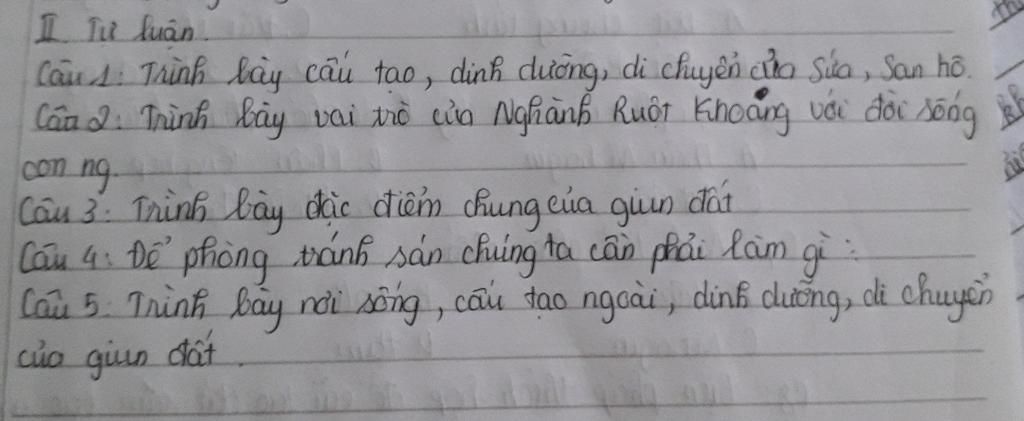 II. Tự luận.
Câu 1: Trình bày cấu tạo, dinh dưỡng, di chuyển của Sứa, San hô.
Câu 2: Trình bày vai trò của Nghành Ruột Khoang với đời sống
con ng.
Câu 3: Trình bày đặc điểm chung của giun đất
Câu 4: Để phòng tránh sán chúng ta cần phải làm gì :
Câu 5: Trình bày nơi sống, cấu tạo ngoài, dinh dưỡng, di chuyển
của giun đất.